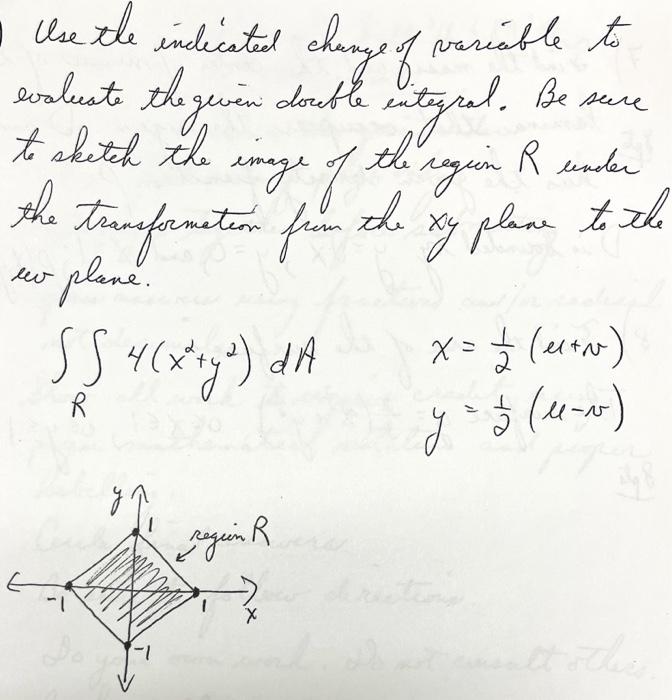 ) Use the indicated change of variable to
evaluate the given double integral. Be sure
to sketch the image of the region R under
the transformation from the xy plane to the
uv plane.
∫∫ 4(x²+y²) dA x = 1/2 (u+v)
R
y = 1/2 (u-v)
y
1
region R
-1 1
x
-1